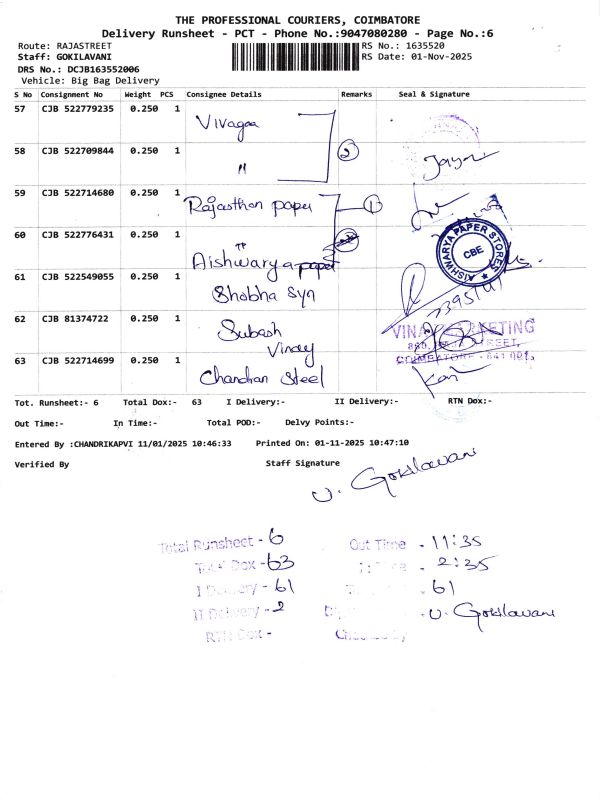 THE PROFESSIONAL COURIERS, COIMBATORE
Delivery Runsheet - PCT - Phone No.:9047080280 - Page No.:6
Route: RAJASTREET RS No.: 1635520
Staff: GOKILAVANI RS Date: 01-Nov-2025
DRS No.: DCJB163552006
Vehicle: Big Bag Delivery
S No Consignment No Weight PCS Consignee Details Remarks Seal & Signature
57 CJB 522779235 0.250 1 Vivagaa
58 CJB 522709844 0.250 1 " 2 Jayan
59 CJB 522714680 0.250 1 Rajasthan paper 1
60 CJB 522776431 0.250 1 Aishwarya paper
AISHWARYA PAPER STORES CBE
61 CJB 522549055 0.250 1 Shobha Syn
62 CJB 81374722 0.250 1 Subash
Vinay
63 CJB 522714699 0.250 1 Chandran Steel
COIMBATORE - 641 001.
Tot. Runsheet:- 6 Total Dox:- 63 I Delivery:- II Delivery:- RTN Dox:-
Out Time:- In Time:- Total POD:- Delvy Points:-
Entered By :CHANDRIKAPVI 11/01/2025 10:46:33 Printed On: 01-11-2025 10:47:10
Verified By Staff Signature
U. Gokilavani
Total Runsheet - 6 Out Time - 11:35
Total Dox - 63 - 2:35
I Delivery - 61 - 61
II Delivery - 2 - U. Gokilavani
RTN Dox - Checked by